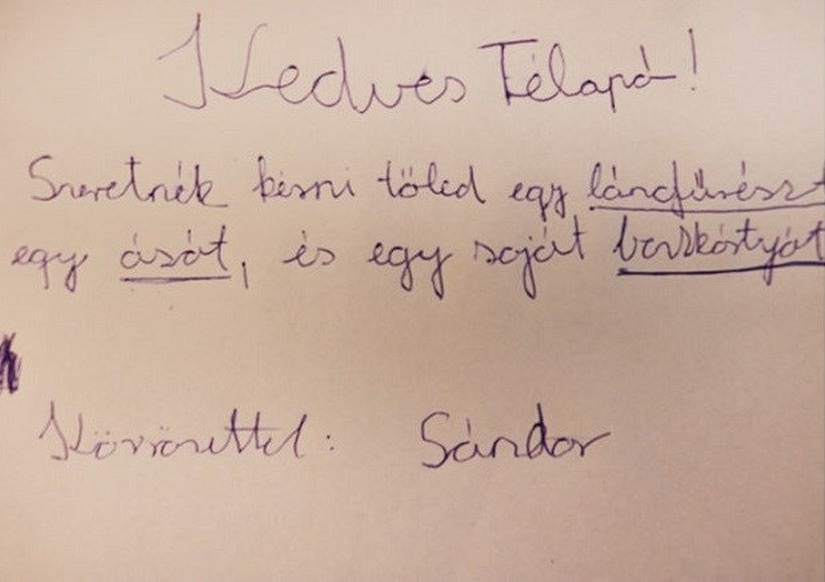 Kedves Télapó!
Szeretnék kérni tőled egy láncfűrészt
egy ásót, és egy saját bankkártyát
Köszönettel: Sándor